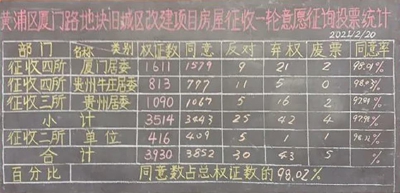 黄浦区厦门路地块旧城区改建项目房屋征收一轮意愿征询投票统计
2021/2/20
部门 名称 类别 权证数 同意 反对 弃权 废票 同意率
征收四所 厦门居委 1611 1579 9 21 2 98.01%
征收四所 贵州牛庄居委 813 797 11 5 0 98.03%
征收三所 贵州居委 1090 1067 5 16 2
小计 3514 3443 25 42 4 97.98%
征收二所 单位 416 409 5 1 1
合计 3930 3852 30 43 5 %
百分比 同意数占总权证数的98.02%